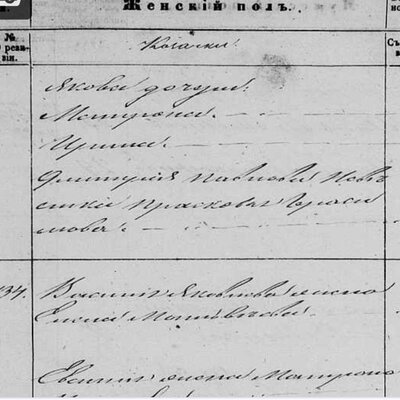 Женскій полъ.
№
реви-
зіи.
Козачки:
Якова дочери:
Матрона.
Ирина.
Дмитрія Павлова невѣ-
стка Прасковья Гераси
мова.
34. Василія Яковлева жена
Елена Матвѣева.
Евсѣя жена Матрона